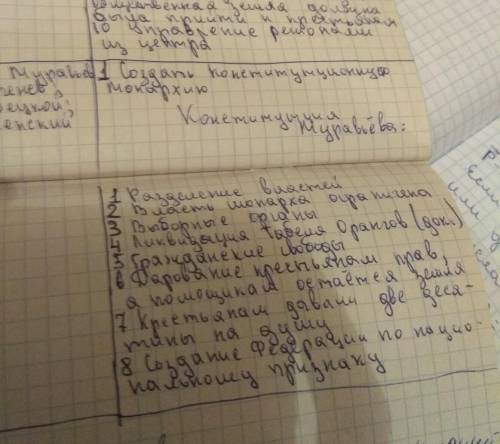 общественная земля должна
была прийти к крестьянам
10 управление регионами
из центра
Муравьёв
1 Создать конституционную
монархию
Конституция
Муравьёва:
1 Разделение властей
2 Власть монарха ограничена
3 Выборные органы
4 Ликвидация табеля Орангов
5 Гражданские свободы
6 Дарование крестьянам прав,
а помощикам остаётся земля
7 Крестьянам давали две деся-
тины на душу
8 Создание Федерации по нацио-
нальному признаку